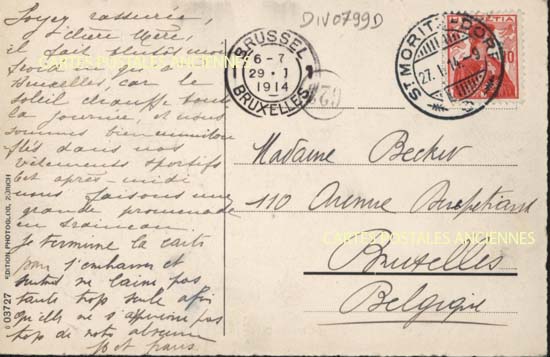 Soyez rassurée,
chère Mère,
il fait plutôt moins
froid ici qu'à
Bruxelles, car le
soleil chauffe tous
la journée, et nous
sommes bien emmitou
flés dans nos
vêtements sportifs
Cet après midi
nous faisons une
grande promenade
en traineau.
Je termine la carte
pour t'embrasser et
ne laisse pas
tante trop seule afin
qu'elle ne s'aperçoive pas
trop de notre absence
et
DIV0799D
BRUSSEL
6-7
29 · I
1914
BRUXELLES
1
ST. MORITZ-DORF
HELVETIA
10
Madame Becker
110 Avenue
Bruxelles
Belgique
CARTES POSTALES ANCIENNES
CARTES POSTALES ANCIENNES
CARTES POSTALES ANCIENNES
03727 EDITION PHOTOGLOB, ZÜRICH